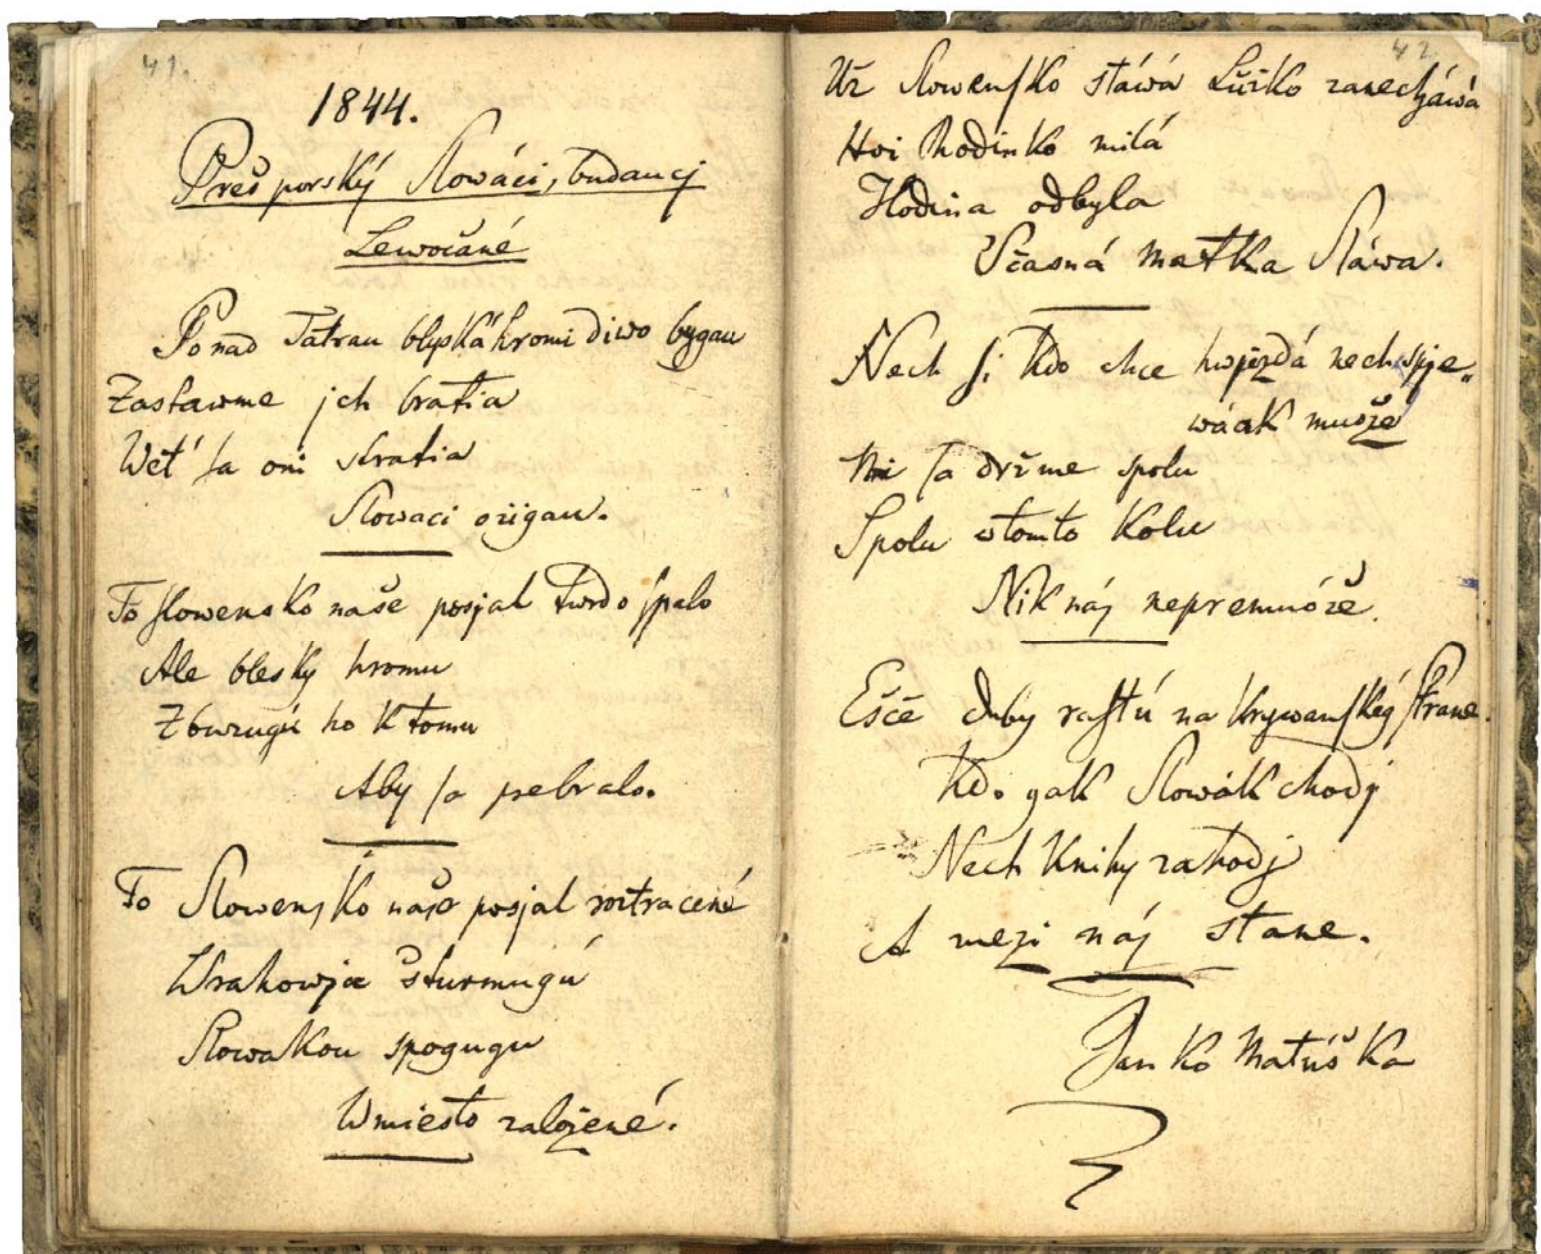 41.
1844.
Prešporský Slowáci, budaucj
Lewočané
Ponad Tatrau blyská hromi diwo bygau
Zastawme jch bratia
Weť sa oni stratia
Slowaci ožigau.
To slowensko naše posjal twrdo spalo
Ale blesky hromu
Zbuzugú ho k tomu
Aby sa prebralo.
To Slowensko naše posjal roztracené
Wrahowja šturmugú
Slowakou spogugu
Wmiesto založené.
42
Už Slowensko stáwá Lúžko zanecháwá
Hoi Rodinko milá
Hodina odbyla
Včasná matka Sláwa.
Nech si kdo chce hwjezdá nech spje„
wáak muože
Mi sa držme spolu
Spolu wtomto kolu
Nik nás nepremuóže.
Ešče duby rastú na krywanskég strane.
Kdo gak Slowák chodj
Nech knihy zahodj
A mezi nás stane.
Janko Matúška